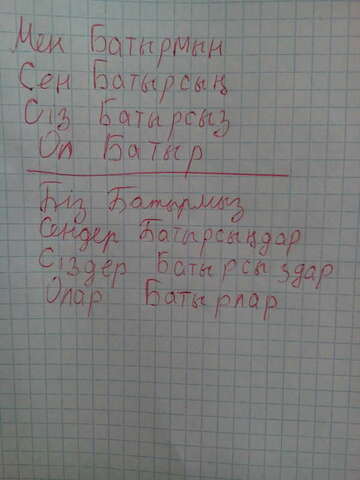 Мен Батырмын
Сен Батырсың
Сіз Батырсыз
Ол Батыр
Біз Батырмыз
Сендер Батырсыңдар
Сіздер Батырсыздар
Олар Батырлар